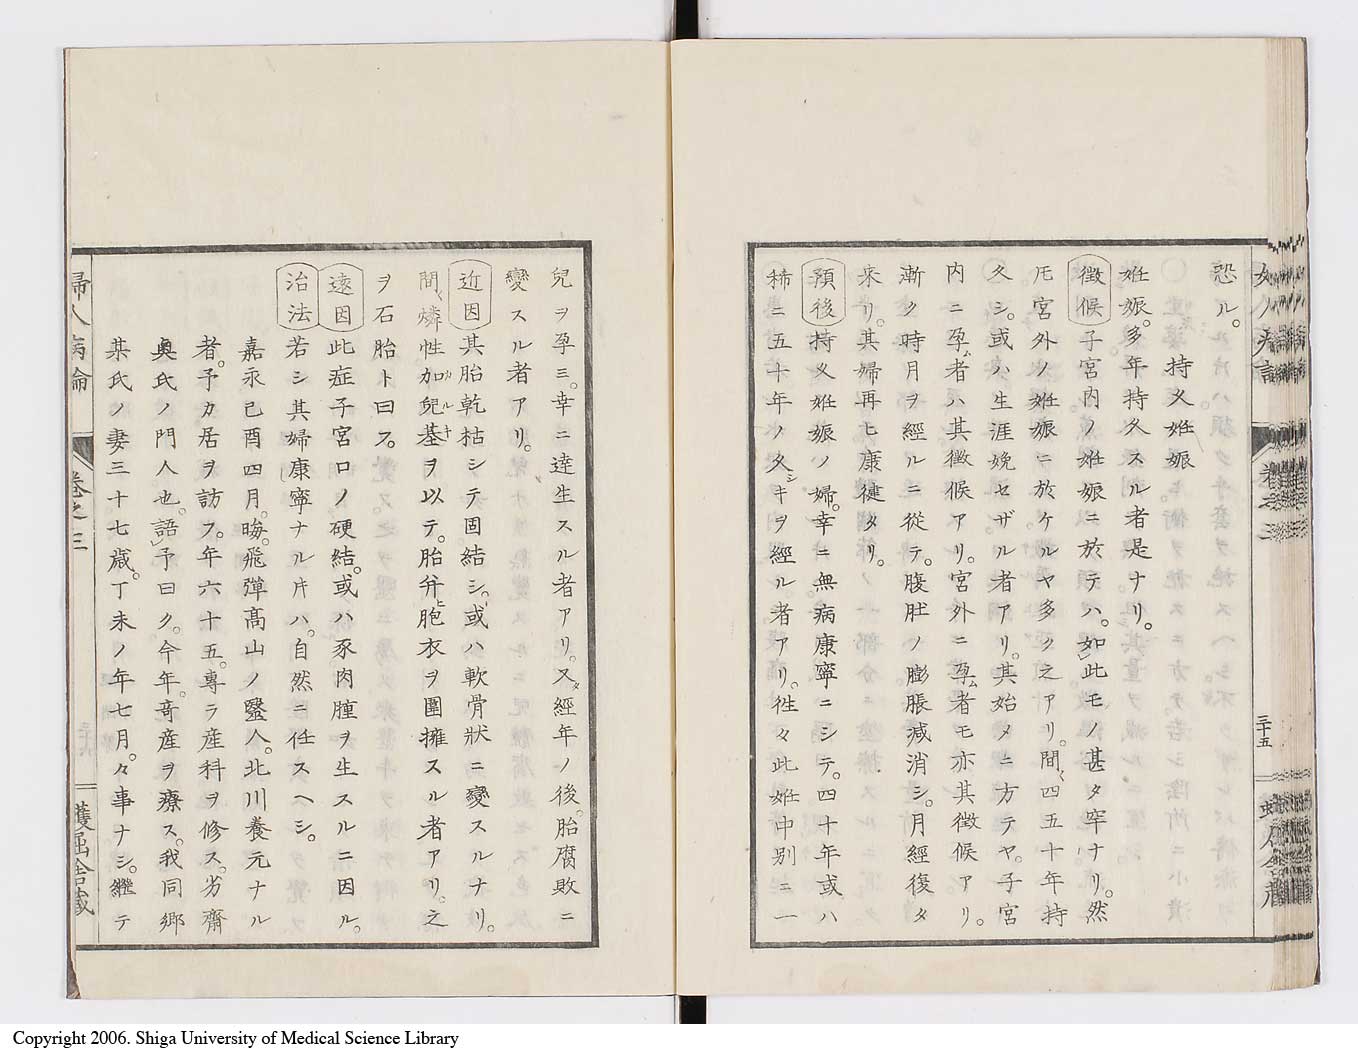 恐ル。
持久姙娠
姙娠。多年持久スル者是ナリ。
徴候 子宮内ノ姙娠ニ於テハ。如此モノ甚タ罕ナリ。然
𪜈宮外ノ姙娠ニ於ケルヤ多ク之アリ。間〻四五十年持
久シ。或ハ生涯娩セザル者アリ。其始メニ方テヤ。子宮
内ニ孕ム者ハ其徴候アリ。宮外ニ孕ム者モ亦其徴候アリ。
漸ク時月ヲ經ルニ從テ。腹肚ノ膨脹減消シ。月經復タ
来リ。其婦再ヒ康健タリ。
預後 持久姙娠ノ婦。幸ニ無病康寧ニシテ。四十年或ハ
稀ニ五十年ノ久シキヲ經ル者アリ。徃々此姙中別ニ一
三十五
兒ヲ孕ミ。幸ニ達生スル者アリ。又タ經年ノ後。胎腐敗ニ
變スル者アリ。
近因 其胎乾枯シテ固結シ。或ハ軟骨狀ニ變スルナリ。
間〻燐性加兒基カルキヲ以テ。胎幷ヒ胞衣ヲ圍擁スル者アリ。之
ヲ石胎ト曰フ。
遠因 此症子宮口ノ硬結。或ハ豕肉腫ヲ生スルニ因ル。
治法 若シ其婦康寧ナル片ハ。自然ニ任スヘシ。
嘉永己酉四月。晦。飛彈高山ノ醫人。北川養元ナル
者。予カ居ヲ訪フ。年六十五。專ラ産科ヲ修ス。劣齋
奥氏ノ門人也。語予曰ク。今年。奇産ヲ療ス。我同郷
某氏ノ妻三十七歳。丁未ノ年七月。々事ナシ。繼テ
婦人病論 卷之三 蠖屈舎藏
Copyright 2006. Shiga University of Medical Science Library